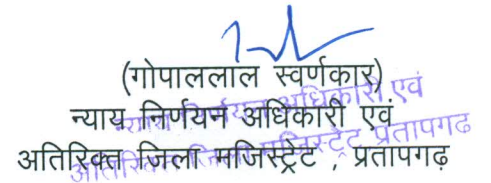 (गोपाललाल स्वर्णकार)
न्याय निर्णयन अधिकारी एवं
अतिरिक्त जिला मजिस्ट्रेट , प्रतापगढ़
न्याय निर्णयन अधिकारी एवं
अतिरिक्त जिला मजिस्ट्रेट प्रतापगढ